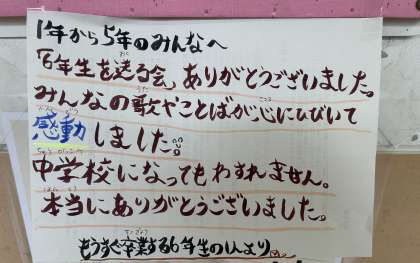 1年から5年のみんなへ
「6年生を送る会」ありがとうございました。
みんなの歌やことばが心にひびいて
感動しました。
中学校になってもわすれません。
本当にありがとうございました。
もうすぐ卒業する6年生の1人より